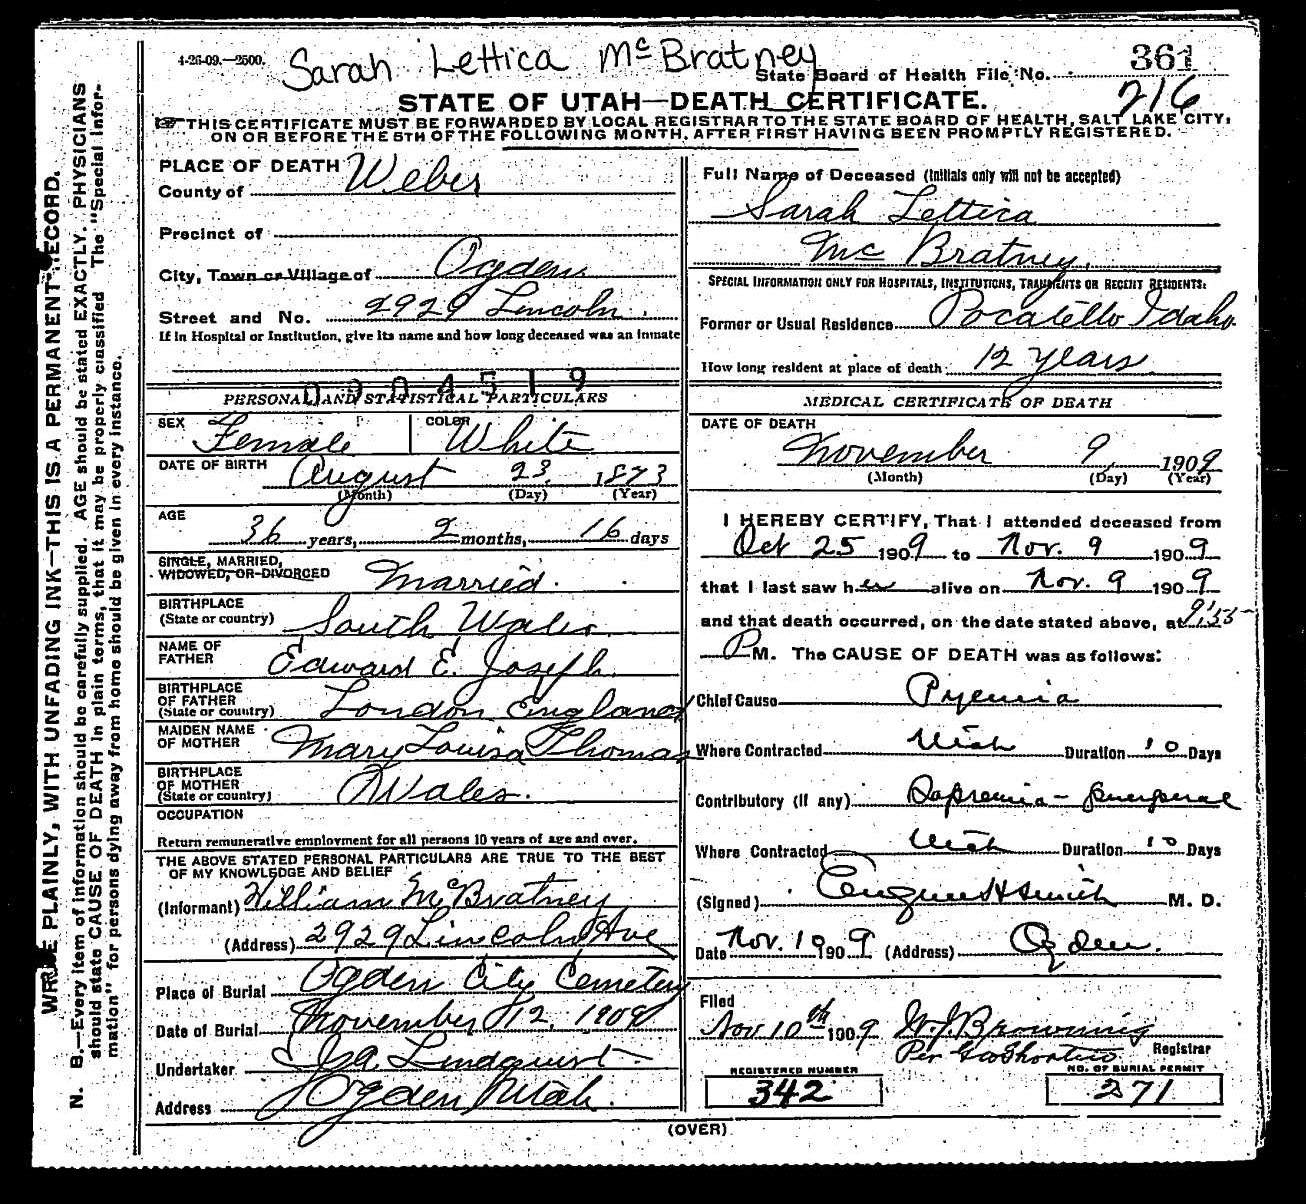 4-26-09.—2500.
Sarah Lettica McBratney
361
State Board of Health File No.
216
STATE OF UTAH—DEATH CERTIFICATE.
THIS CERTIFICATE MUST BE FORWARDED BY LOCAL REGISTRAR TO THE STATE BOARD OF HEALTH, SALT LAKE CITY,
ON OR BEFORE THE 5TH OF THE FOLLOWING MONTH, AFTER FIRST HAVING BEEN PROMPTLY REGISTERED.
WRITE PLAINLY, WITH UNFADING INK—THIS IS A PERMANENT RECORD.
N. B.—Every item of information should be carefully supplied. AGE should be stated EXACTLY. PHYSICIANS
should state CAUSE OF DEATH in plain terms, that it may be properly classified. The "Special Infor-
mation" for persons dying away from home should be given in every instance.
PLACE OF DEATH
County of Weber
Precinct of
City, Town or Village of Ogden
Street and No. 2929 Lincoln.
If in Hospital or Institution, give its name and how long deceased was an inmate
0904519
PERSONAL AND STATISTICAL PARTICULARS
SEX Female COLOR White
DATE OF BIRTH August 23 1873
(Month) (Day) (Year)
AGE
36 years, 2 months, 16 days
SINGLE, MARRIED,
WIDOWED, OR DIVORCED Married.
BIRTHPLACE
(State or country) South Wales.
NAME OF
FATHER Edward E. Joseph.
BIRTHPLACE
OF FATHER
(State or country) London England
MAIDEN NAME
OF MOTHER Mary Louisa Thomas
BIRTHPLACE
OF MOTHER
(State or country) Wales.
OCCUPATION
Return remunerative employment for all persons 10 years of age and over.
THE ABOVE STATED PERSONAL PARTICULARS ARE TRUE TO THE BEST
OF MY KNOWLEDGE AND BELIEF
(Informant) William McBratney
(Address) 2929 Lincoln Ave
Place of Burial Ogden City Cemetery
Date of Burial November 12, 1909
Undertaker Lindquist
Address Ogden Utah.
Full Name of Deceased (Initials only will not be accepted)
Sarah Lettica
Mc Bratney.
SPECIAL INFORMATION ONLY FOR HOSPITALS, INSTITUTIONS, TRANSIENTS OR RECENT RESIDENTS:
Former or Usual Residence Pocatello Idaho.
How long resident at place of death 12 years
MEDICAL CERTIFICATE OF DEATH
DATE OF DEATH
November 9, 1909
(Month) (Day) (Year)
I HEREBY CERTIFY, That I attended deceased from
Oct 25 1909 to Nov. 9 1909
that I last saw her alive on Nov. 9 1909
and that death occurred, on the date stated above, at 9:55
P M. The CAUSE OF DEATH was as follows:
Chief Cause Pyemia
Where Contracted Utah Duration 10 Days
Contributory (if any) Sapremia - puerperal
Where Contracted Utah Duration 10 Days
(Signed) Eugene H Smith M. D.
Date Nov. 1909 (Address) Ogden.
Filed
Nov 10th 1909 W. J. Browning
Per Registrar
REGISTERED NUMBER
342
NO. OF BURIAL PERMIT
271
(OVER)